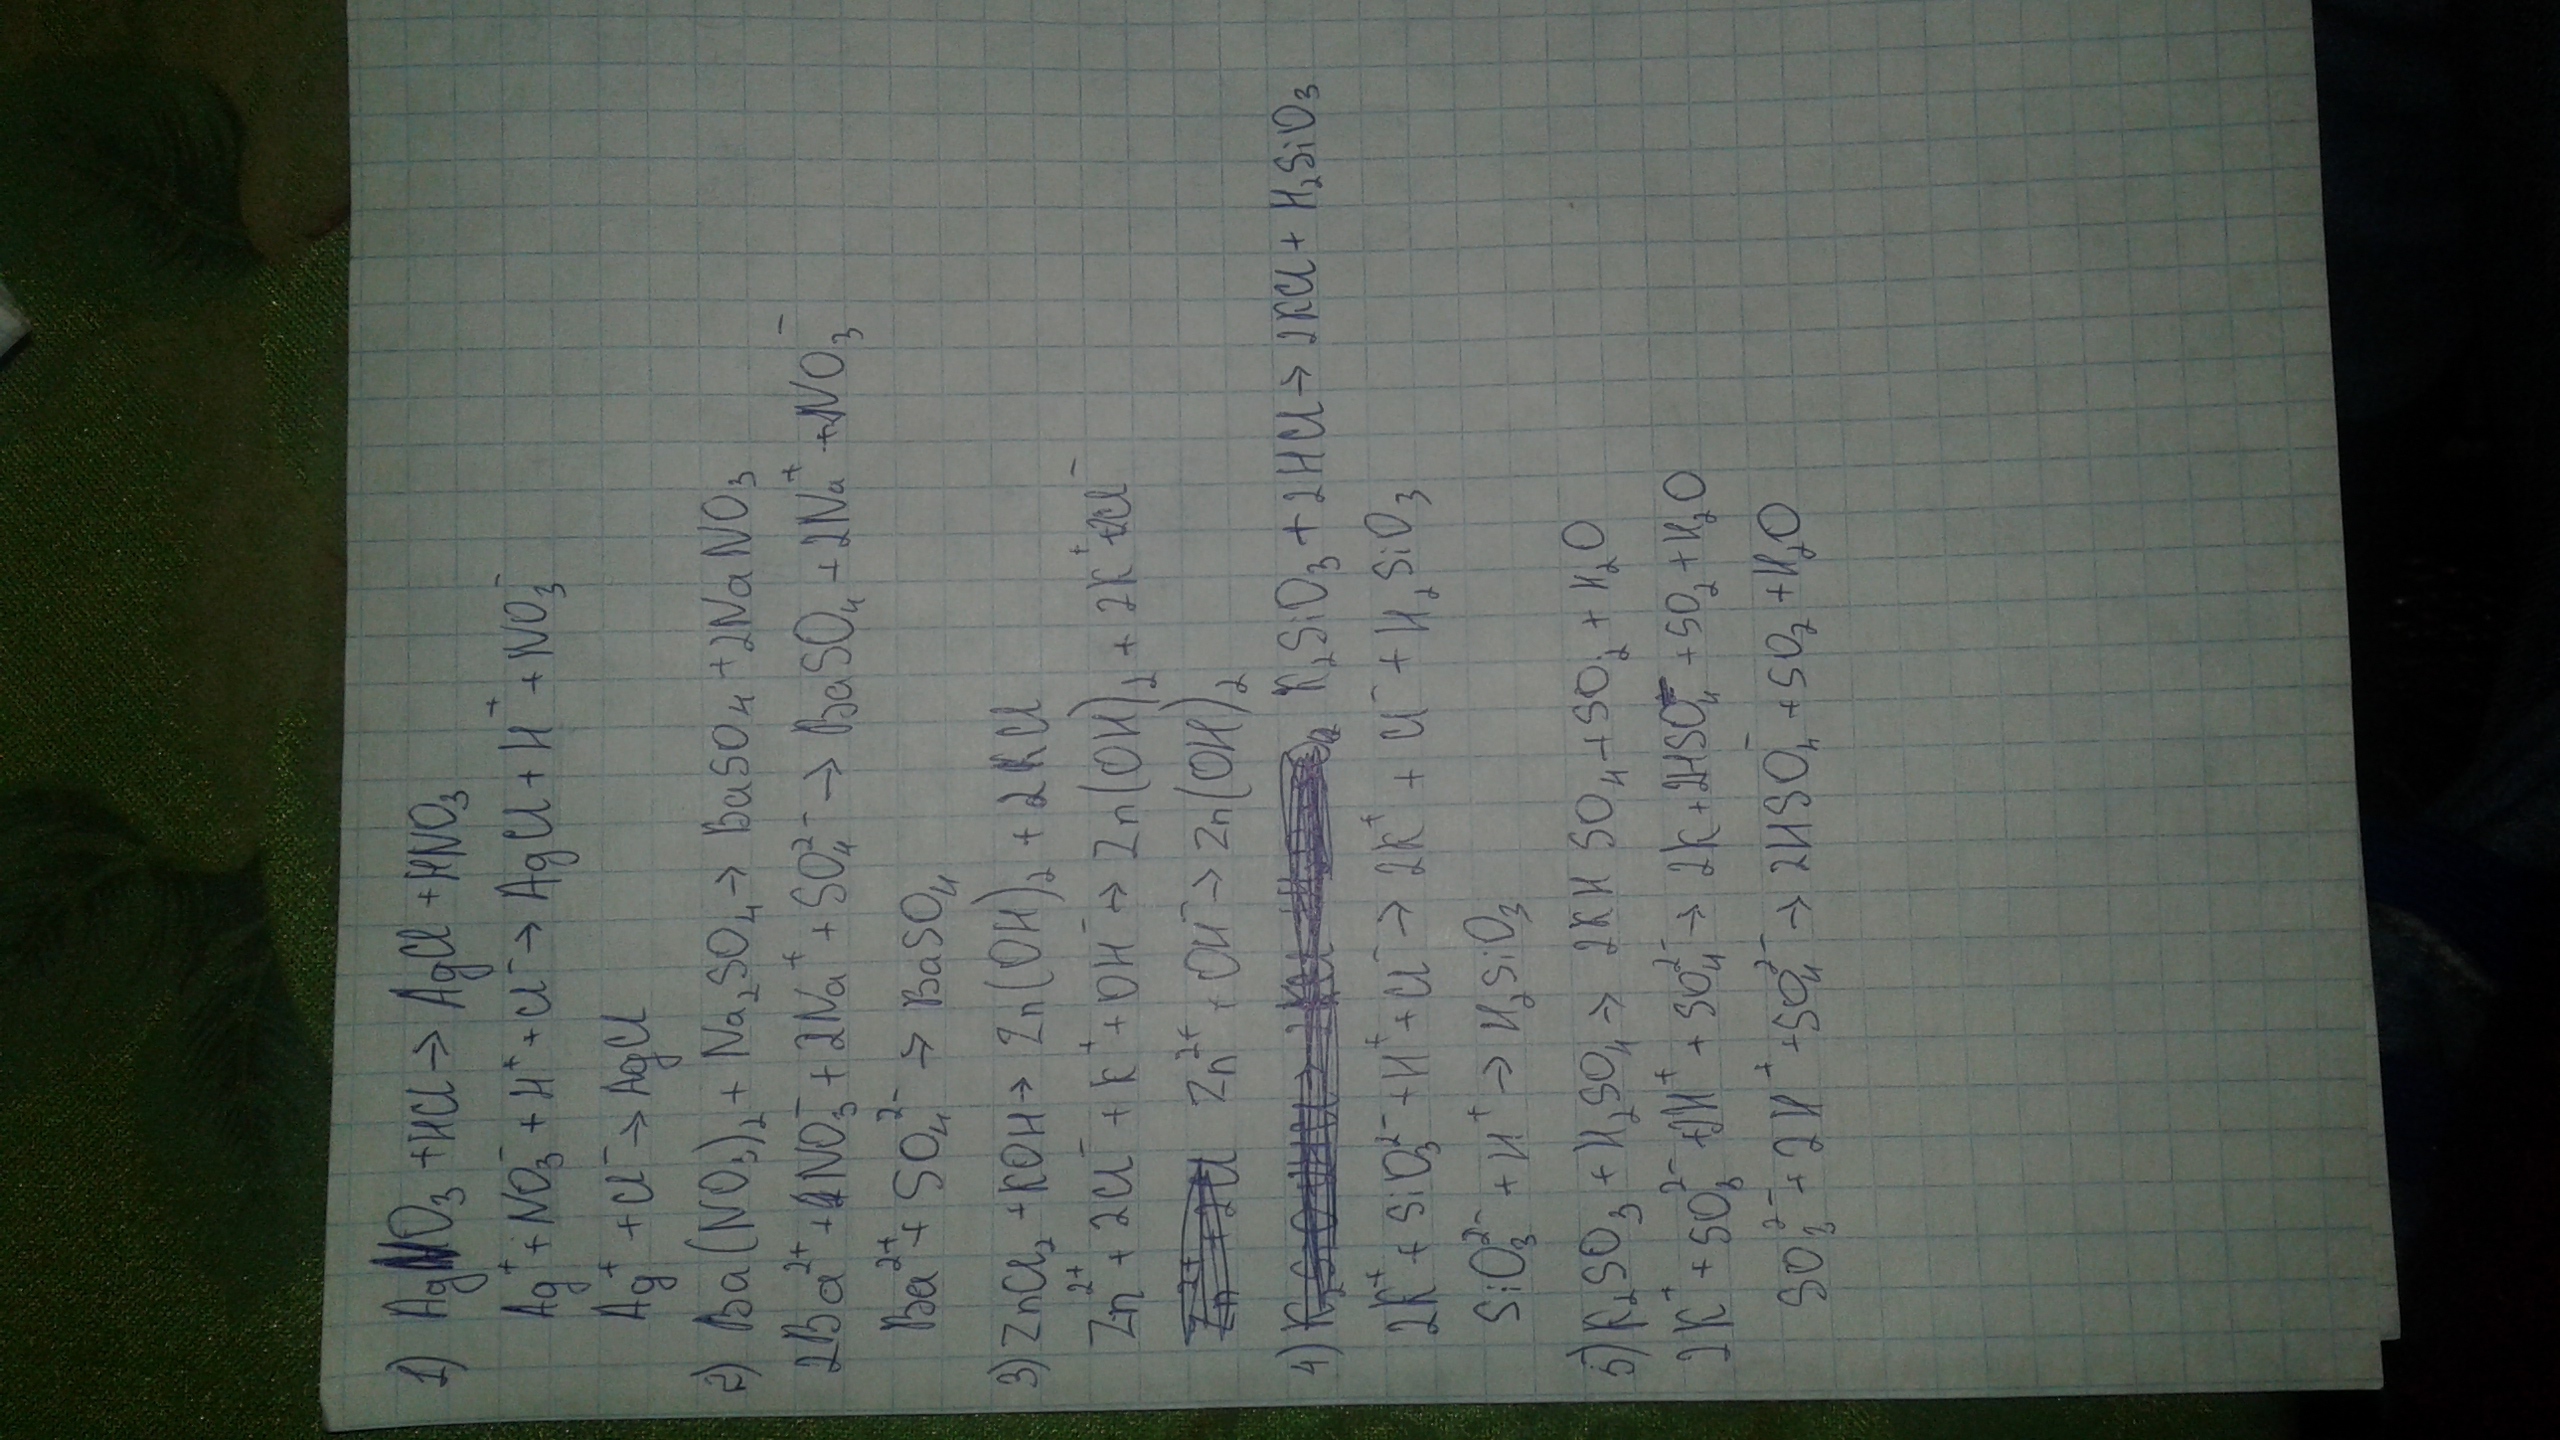 1) AgNO₃ + HCl → AgCl + HNO₃
Ag⁺ + NO₃⁻ + H⁺ + Cl⁻ → AgCl + H⁺ + NO₃⁻
Ag⁺ + Cl⁻ → AgCl
2) Ba(NO₃)₂ + Na₂SO₄ → BaSO₄ + 2NaNO₃
2Ba²⁺ + NO₃⁻ + 2Na⁺ + SO₄²⁻ → BaSO₄ + 2Na⁺ + NO₃⁻
Ba²⁺ + SO₄²⁻ → BaSO₄
3) ZnCl₂ + KOH → Zn(OH)₂ + 2KCl
Zn²⁺ + 2Cl⁻ + K⁺ + OH⁻ → Zn(OH)₂ + 2K⁺ + 2Cl⁻
Zn²⁺ + OH⁻ → Zn(OH)₂
4) K₂SiO₃ + 2HCl → 2KCl + H₂SiO₃
2K⁺ + SiO₃²⁻ + H⁺ + Cl⁻ → 2K⁺ + Cl⁻ + H₂SiO₃
SiO₃²⁻ + H⁺ → H₂SiO₃
5) K₂SO₃ + H₂SO₄ → 2KHSO₄ + SO₂ + H₂O
2K⁺ + SO₃²⁻ + 2H⁺ + SO₄²⁻ → 2K + 2HSO₄⁻ + SO₂ + H₂O
SO₃²⁻ + 2H⁺ + SO₄²⁻ → 2HSO₄⁻ + SO₂ + H₂O